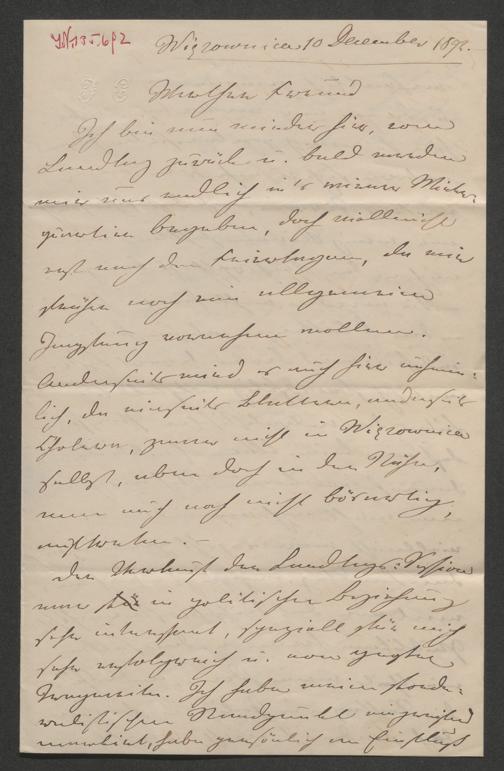 JN 135.692
Wiązownica 10 December 1892.
Werther Freund
Ich bin nun wieder hier, vom
Landtag zurück u. bald werden
wir uns endlich in's wiener Winter-
quartier begeben, doch vielleicht
erst nach den Feiertagen, da wir
früher noch eine allgemeine
Impfung vornehmen wollen.
Anderseits wird es auch hier
lich, da einerseits Blattern, anderseits
Cholera, zwar nicht in Wiązownica
selbst, aber doch in der Nähe,
wenn auch noch nicht bösartig,
auftreten. –
Der Verlauf der Landtags-Session
war in politischer Beziehung
sehr interessant, speziell für mich
sehr erfolgreich u. von großer
Tragweite. Ich habe meinen
Standpunkt
habe persönlich an Einfluß